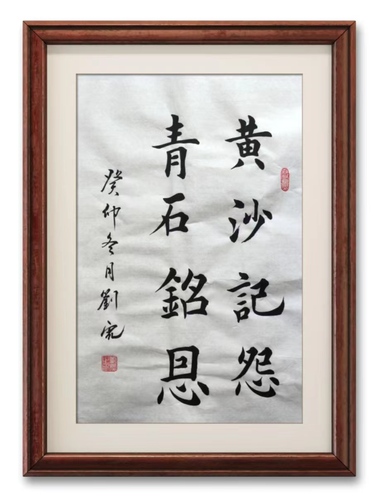 黄沙記怨
青石銘恩
癸卯冬月劉